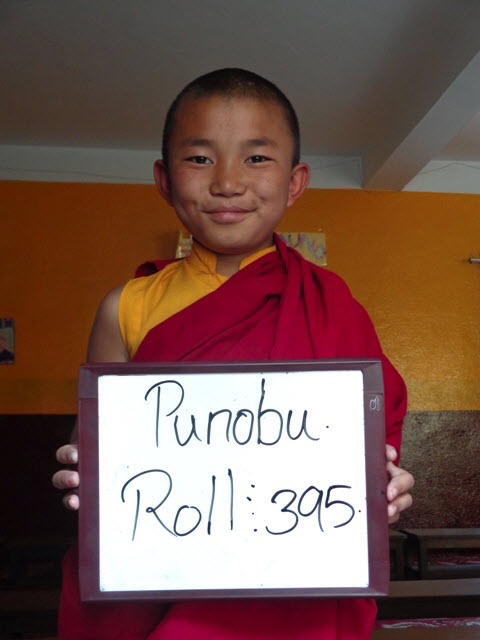 Punobu.
Roll : 395.